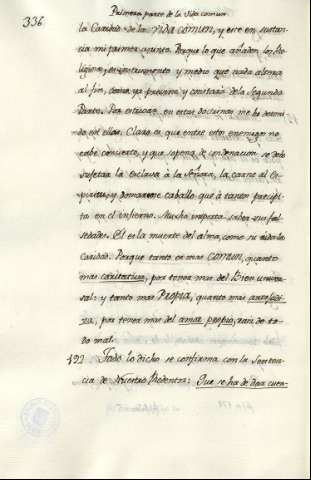 336.
Primera parte de la Vida comun.
la Caridad de la vida comun, y este en sustan
cia mi primer punto. Porque lo que añaden los Re
ligiosos, es instrumento y medio que cada
al fin, como ya previne y constará de la Segunda
Parte. Por estas en estas doctrinas me he deteni
do en ellas. Claro es que entre estos enemigos no
cabe concierto, y que so pena de condenacion se debe
sujetar la esclava à la Señora, la carne al Es
piritu, y domarse caballo que à tantos precipi
ta en el infierno. Mucho importa saber sus fal
sedades. Él es la muerte del alma, como su vida la
Caridad. Porque tanto es mas comun, quanto
mas caritativa, por tener mas del Bien univer
sal: y tanto mas Propia, quanto mas
por tener mas del amor propio, raiz de to
do mal.
192 Todo lo dicho se confirma con la Senten
cia de Nuestro Redentor: Que se ha de dar cuen-